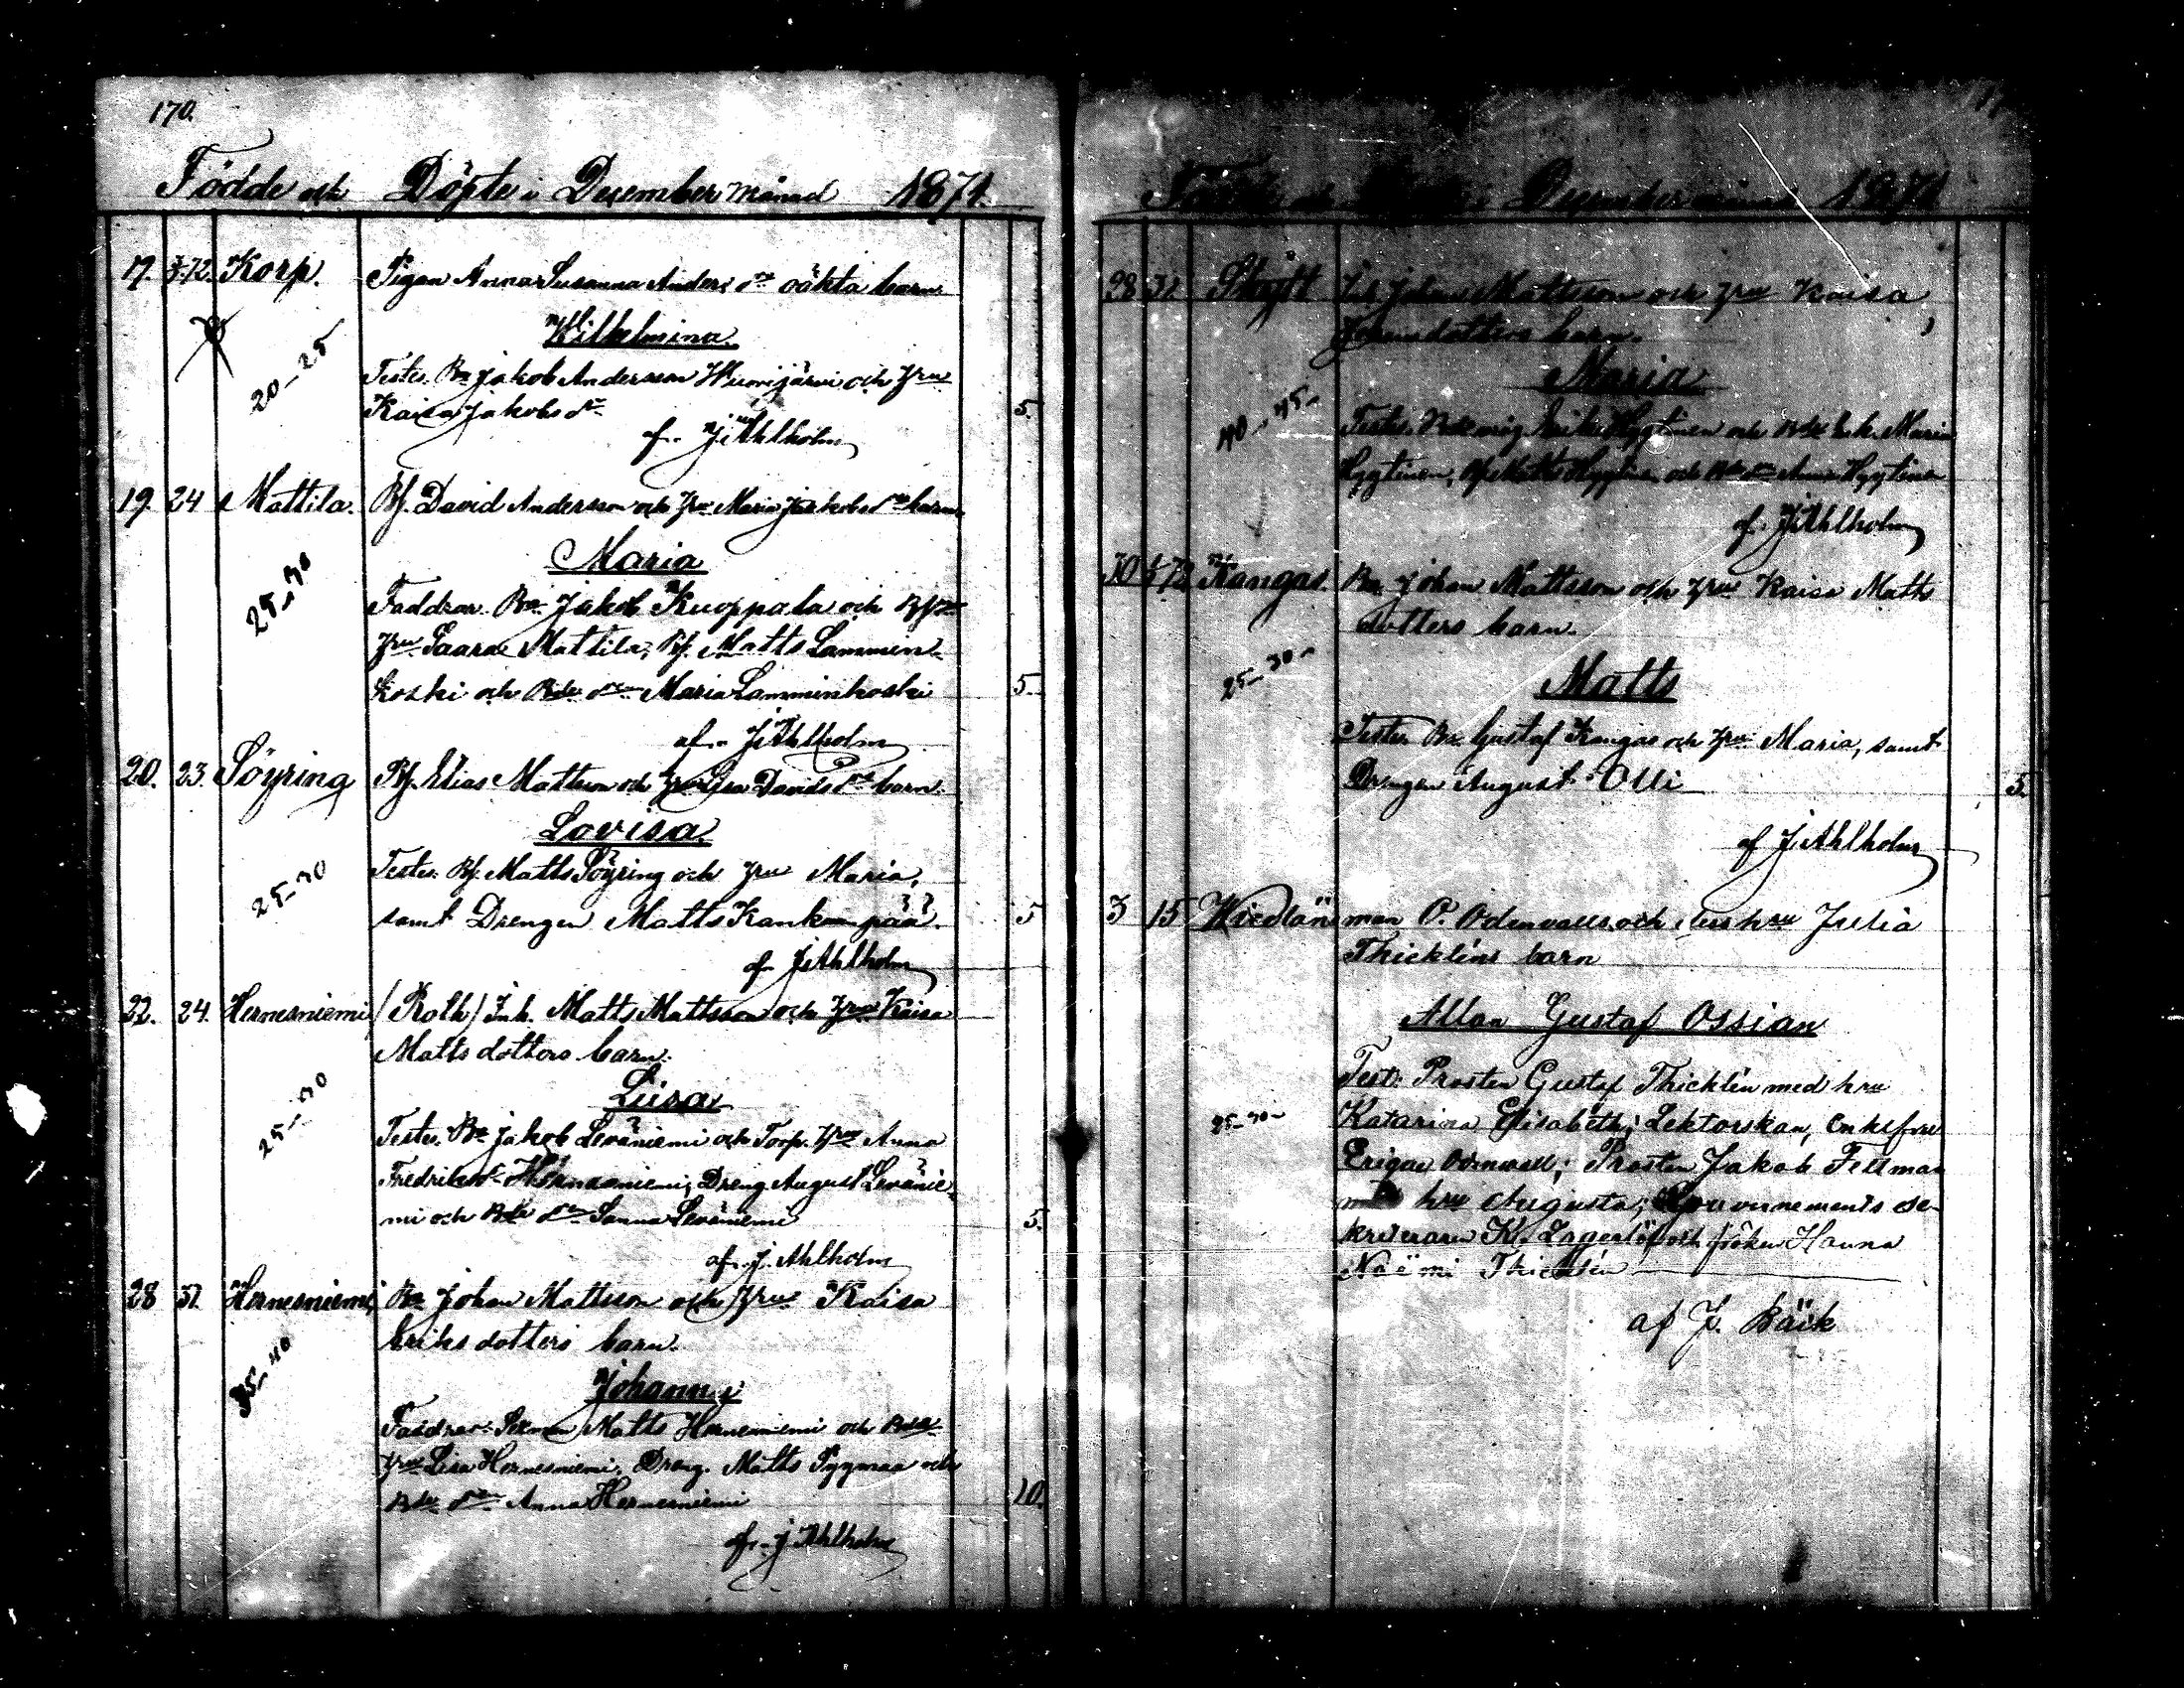 170.
Födde och Döpte i December månad 1871.
17. 3/1 72. Korp. Pigan Anna Susanna Anders dr oäkta barn
Wilhelmina.
20-25
Testes. Bn Jakob Andersson Hunnijärvi och Hru
Kaisa Jakobs dr 5.
af J. Ahlholm
19. 24 Mattila. Bf. David Andersson och Hru Maria Jakobs dr barn
Maria
25-30
Faddrar. Bn Jakob Kuoppala och
Hru Saara Mattila; Bf. Matts Lammin-
koski och Bde dr Maria Lamminkoski 5.
af J. Ahlholm
20. 23. Söyring Bf. Elias Mattsson och Hru Lisa Davids dr barn.
Lovisa.
25-30
Testes. Bf. Matts Söyring och Hru Maria,
samt Drengen Matts Kankaanpää. 5
af J. Ahlholm
22. 24. Hernesniemi / Roth / Inh. Matts Mattsson och Hru Kaisa
Matts dotters barn.
Liisa
25-30
Testes. Bn Jakob Leväniemi och Torp. Hru Anna
Fredrika Hernesniemi; Dreng August Levänie-
mi och Bde dr Sanna Leväniemi 5.
af J. Ahlholm
28 31. Hernesniemi, Bn Johan Mattsson och Hru Kaisa
Eriks dotters barn.
Johannes
35-40
Faddrar. Matts Hernesniemi och
Hru Lisa Hernesniemi; Dreng. Matts Pyymaa och
Bde dr Anna Hernesniemi 10.
af J. Ahlholm
Födde och Döpte i December månad 1871
28 31 Skytt Inh Johan Mattsson och Hru Kaisa
Johansdotters barn.
Maria
40-45-
Testes. Erik Hyytinen och Maria
Hyytinen, Matts Hyytinen och Bde dr Anna Hyytinen
af J. Ahlholm
30 72 Kangas. Bn Johan Mattsson och Hru Kaisa Matts
dotters barn.
Matts
25-30-
Testes Bn Gustaf Kangas och Hru Maria, samt
Drengen August Olli 5.
af J. Ahlholm
3 15 O. Odenvalls och dess hru Julia
Thickléns barn
Allan Gustaf Ossian
Test. Prosten Gustaf Thicklén med hru
25-30-
Katarina Elisabeth; Lektorskan, Enkefru
Erigae Odenwall; Prosten Jakob Fellman
med hru Augusta; Gouvernements se-
kreteraren K. Lagerlöf och fröken Hanna
Noëmi Thicklén
af J. Bäck